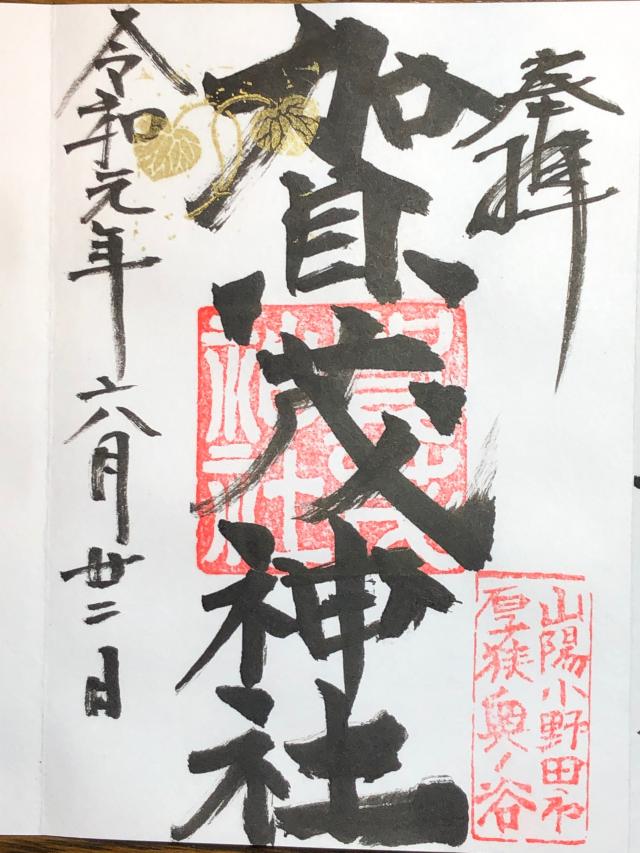 奉拝
加賀茂神社
令和元年六月廿二日
山陽小野田市
厚狭奥ノ谷